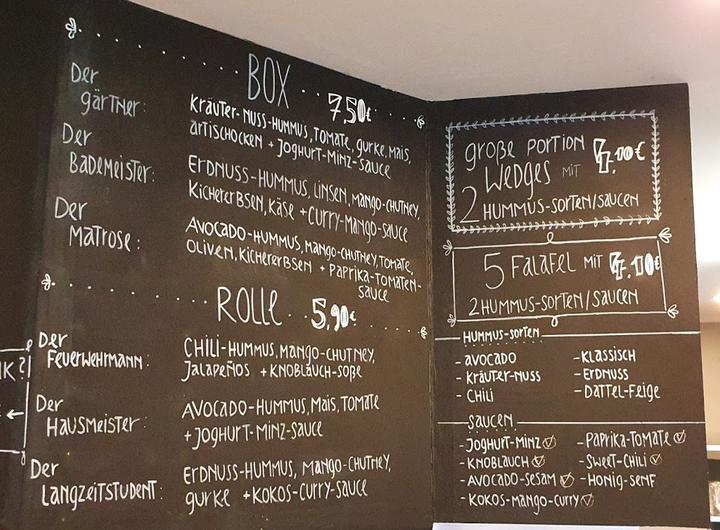 BOX 7,50€
Der Gärtner:
Kräuter-Nuss-Hummus, Tomate, Gurke, Mais,
Artischocken + Joghurt-Minz-Sauce
Der Bademeister:
Erdnuss-Hummus, Linsen, Mango-Chutney,
Kichererbsen, Käse + Curry-Mango-Sauce
Der Matrose:
Avocado-Hummus, Mango-Chutney, Tomate,
Oliven, Kichererbsen + Paprika-Tomaten-
Sauce
ROLLE 5,90€
Der Feuerwehrmann:
Chili-Hummus, Mango-Chutney,
Jalapeños + Knoblauch-Soße
Der Hausmeister:
Avocado-Hummus, Mais, Tomate
+ Joghurt-Minz-Sauce
Der Langzeitstudent:
Erdnuss-Hummus, Mango-Chutney,
Gurke + Kokos-Curry-Sauce
K?
große Portion
Wedges mit
2 Hummus-Sorten/Saucen
5 Falafel mit
2 Hummus-Sorten/Saucen
Hummus-Sorten
- Avocado
- Kräuter-Nuss
- Chili
- Klassisch
- Erdnuss
- Dattel-Feige
Saucen
- Joghurt-Minz
- Knoblauch
- Avocado-Sesam
- Kokos-Mango-Curry
- Paprika-Tomate
- Sweet-Chili
- Honig-Senf